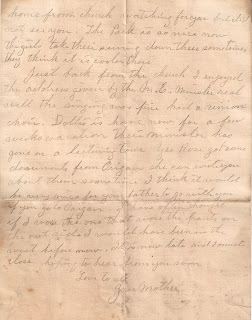 home from church watching for you but did
not see you. The Park is so nice now
the girls take their sewing down there sometimes
they think it is cooler there.
Just back from the church I enjoyed
the address given by the Minister real
well the singing was fine had a union
choir. is home now for a few
weeks vacation their Minister has
gone on a lecturing tour. got some
documents from she can tell you
about them some time. I think it would
be very nice for your father to go with you
if you go to
if I were the one that wore the pants on
our side I would have been in the
west before now. It is now late and I must
close hoping to hear from you soon
Love to all
Your Mother